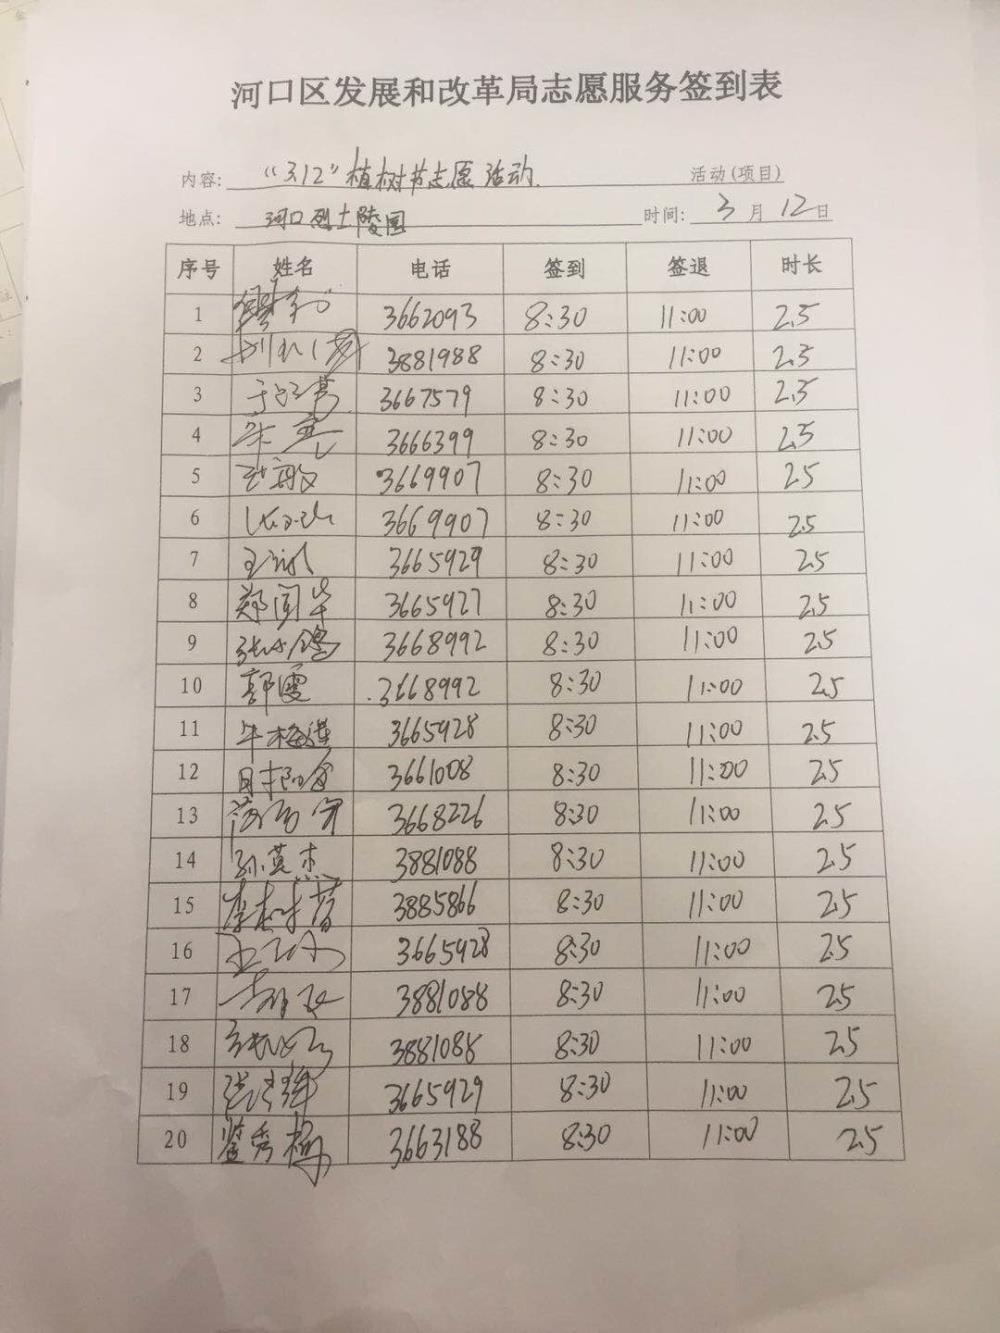 河口区发展和改革局志愿服务签到表
内容: “3.12”植树节志愿活动. 活动(项目)
地点: 河口烈士陵园 时间: 3月12日
序号 姓名 电话 签到 签退 时长
1 3662093 8:30 11:00 2.5
2 3881988 8:30 11:00 2.5
3 3667579 8:30 11:00 2.5
4 3666399 8:30 11:00 2.5
5 3669907 8:30 11:00 2.5
6 3669907 8:30 11:00 2.5
7 3665929 8:30 11:00 2.5
8 郑国华 3665927 8:30 11:00 2.5
9 3668992 8:30 11:00 2.5
10 郭霞 3668992 8:30 11:00 2.5
11 3665928 8:30 11:00 2.5
12 3661008 8:30 11:00 2.5
13 3668226 8:30 11:00 2.5
14 孙英杰 3881088 8:30 11:00 2.5
15 3885866 8:30 11:00 2.5
16 3665928 8:30 11:00 2.5
17 3881088 8:30 11:00 2.5
18 3881088 8:30 11:00 2.5
19 3665929 8:30 11:00 2.5
20 3663188 8:30 11:00 2.5